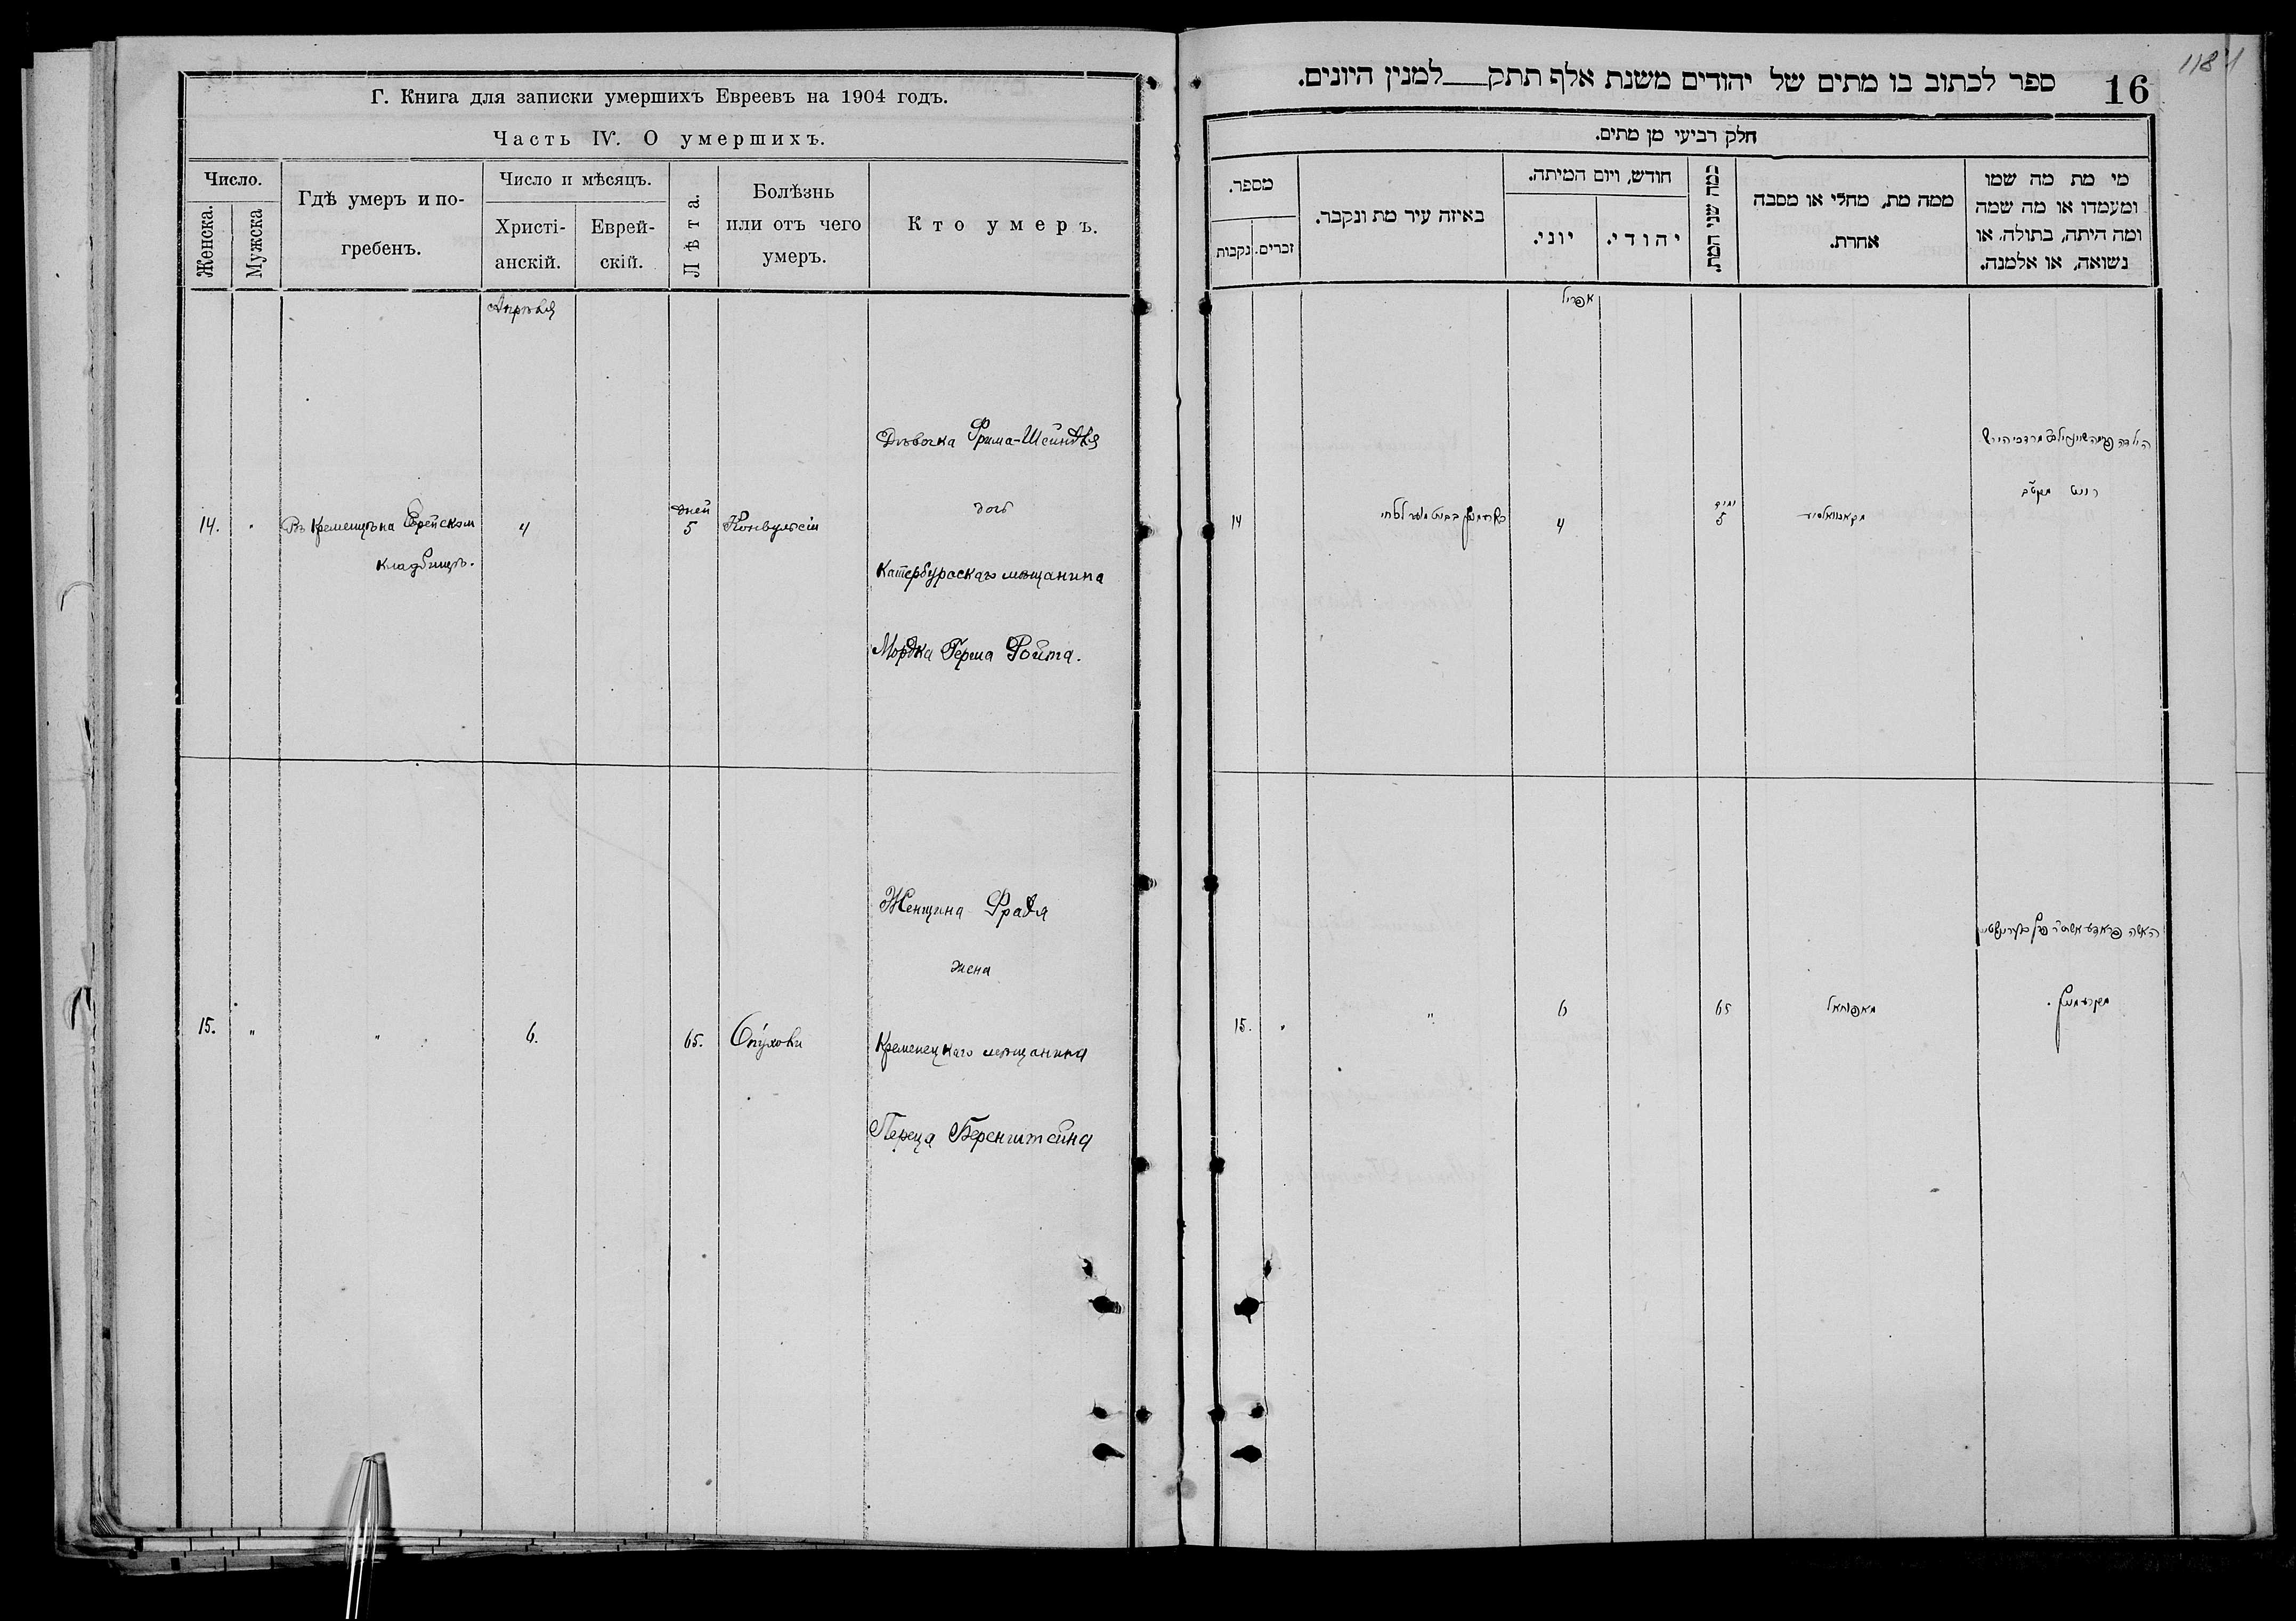 Г. Книга для записки умершихъ Евреевъ на 1904 годъ.
Часть IV. О умершихъ.
Число.
Женска.
Мужска
Гдѣ умеръ и по-
гребенъ.
Число и мѣсяцъ.
Христі-
анскій.
Еврей-
скій.
Лѣта.
Болѣзнь
или отъ чего
умеръ.
Кто умеръ.
Апрѣля
14.
"
Въ Кременцѣ на Еврейском
кладбищѣ.
4
дней
5
Конвульсіи
Дѣвочка Фрима-Шейндля
дочь
Катербургскаго мѣщанина
Мордка Герша Ройта.
15.
"
"
6.
65.
Опухоли
Женщина Фрадя
жена
Кременецкаго мѣщанина
Переца Беренштейна
1184
16
ספר לכתוב בו מתים של יהודים משנת אלף תתק למנין היונים.
חלק רביעי מן מתים.
מספר.
נקבות
זכרים.
באיזה עיר מת ונקבר.
חודש, ויום המיתה.
יוני.
יהודי.
כמה שני המת.
ממה מת, מחלי או מסבה
אחרת.
מי מת מה שמו
ומעמדו או מה שמה
ומה היתה, בתולה, או
נשואה, או אלמנה.
אפריל
14
4
ימים
5
הילדה פרימה שיינדיל בת מרדכי הירש
רויט
15.
"
"
6
65
האשה פראדיע אשת ר' פרץ בערינשטיין
מקרעמניץ.